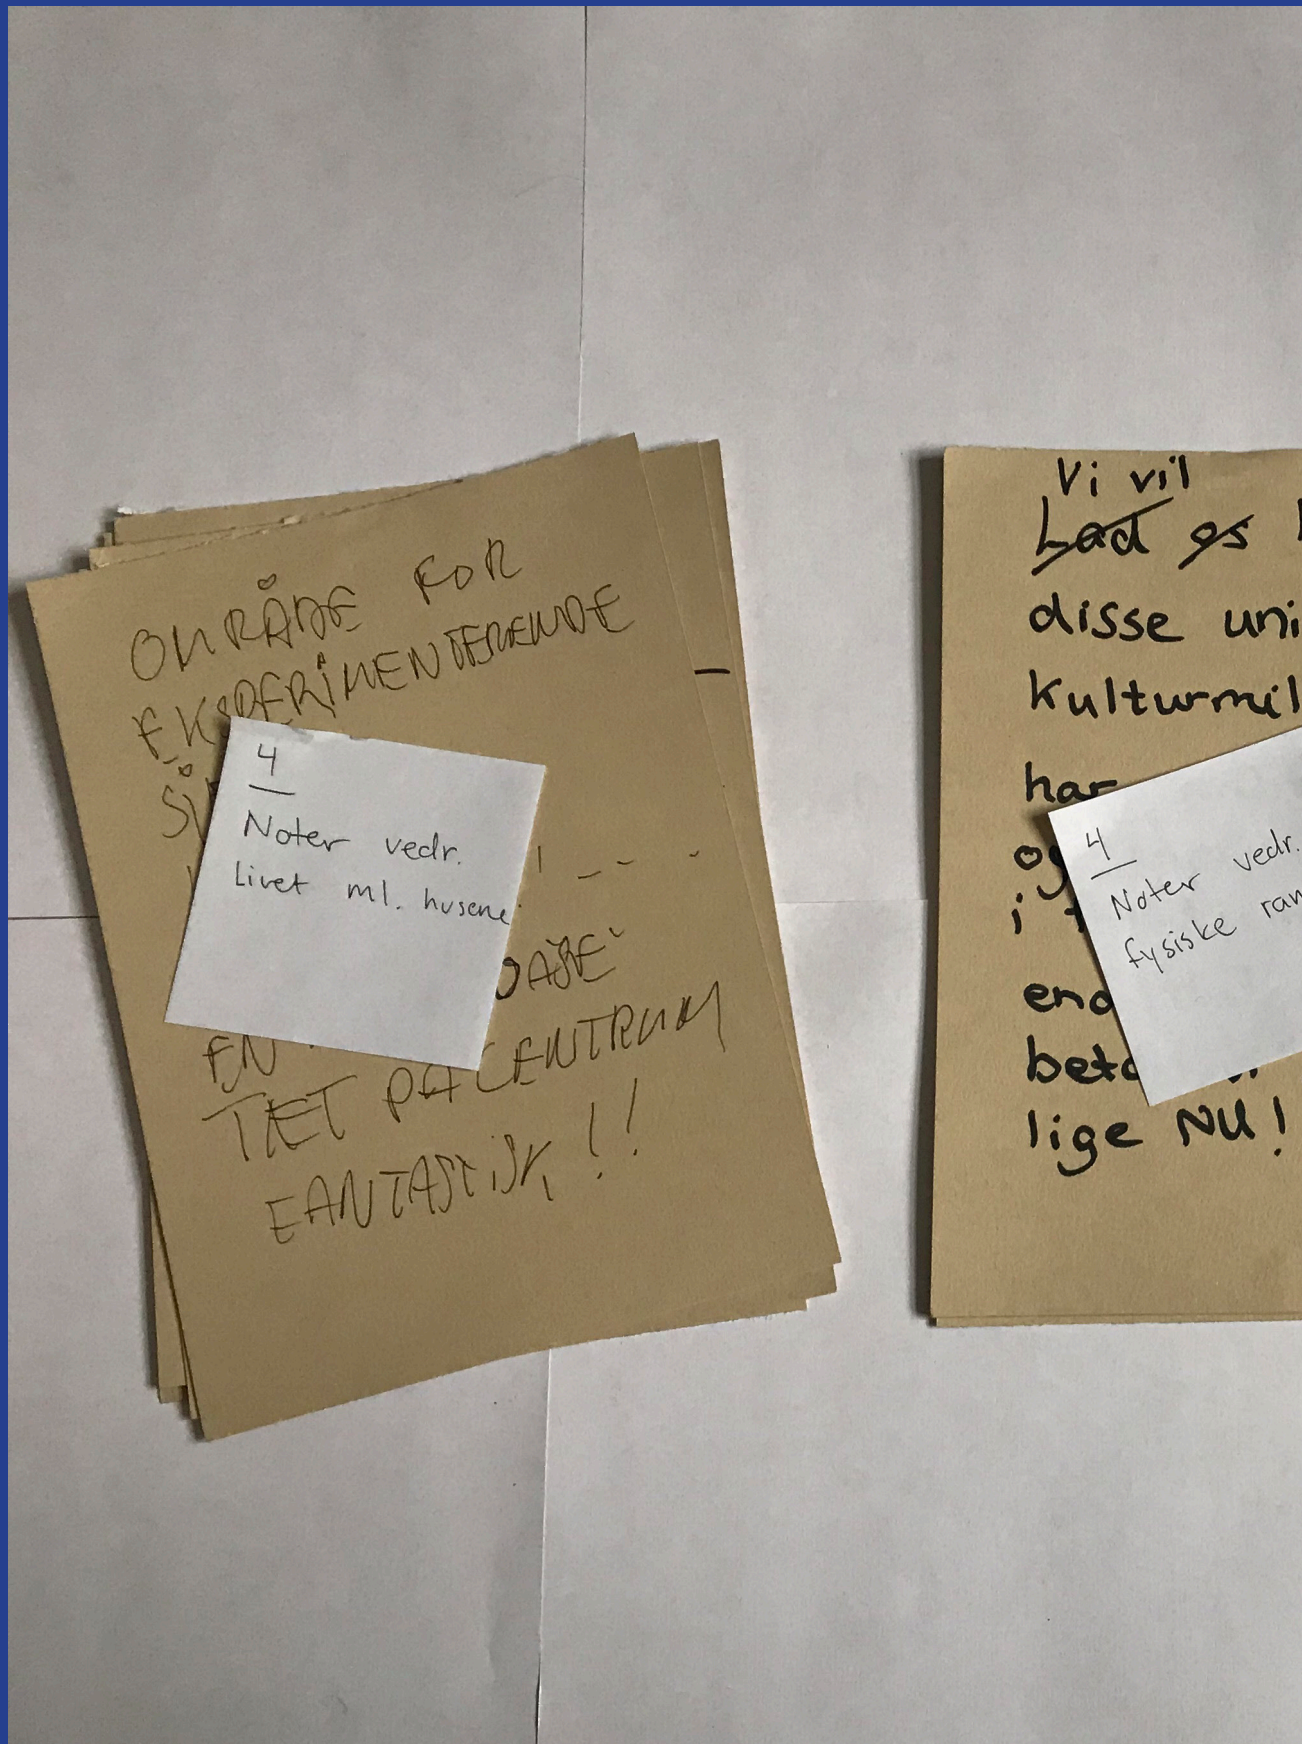 OMRÅDE FOR
EKSPERIMENTERENDE
4
Noter vedr.
Livet ml. husene
OASE
EN
TÆT PÅ CENTRUM
FANTASTISK!!
Vi vil
Lad os
disse uni
Kulturmil
har
og
i
end
beto
lige NU!
4
Noter vedr.
fysiske ram